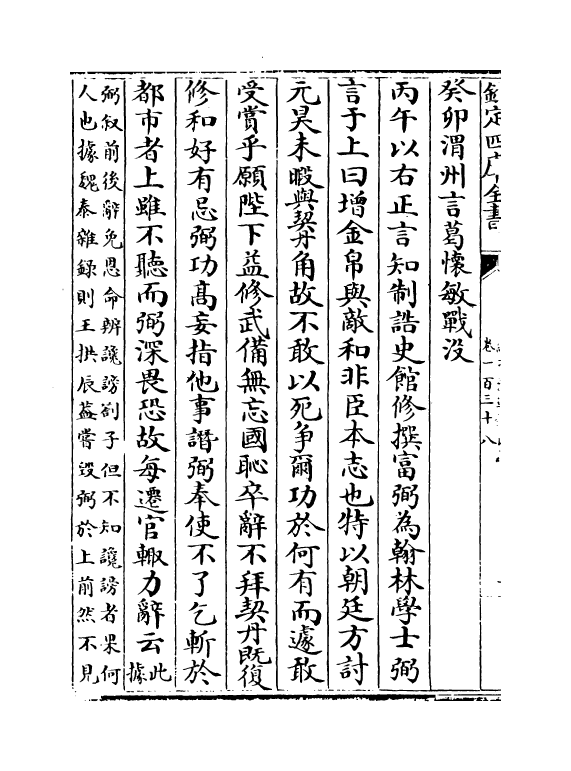 欽定四庫全書
卷一百三十八
癸卯渭州言葛懷敏戰没
丙午以右正言知制誥史館修撰富弼為翰林學士弼
言于上曰增金帛與敵和非臣本志也特以朝廷方討
元昊未暇與契丹角故不敢以死争爾功於何有而遽敢
受賞乎願陛下益修武備無忘國恥卒辭不拜契丹既復
修和好有忌弼功髙妄指他事譖弼奉使不了乞斬於
都市者上雖不聽而弼深畏恐故每遷官輙力辭云此據
弼叙前後辭免恩命辨讒謗劄子但不知讒謗者果何
人也據魏泰雜録則王拱辰葢嘗毁弼於上前然不見